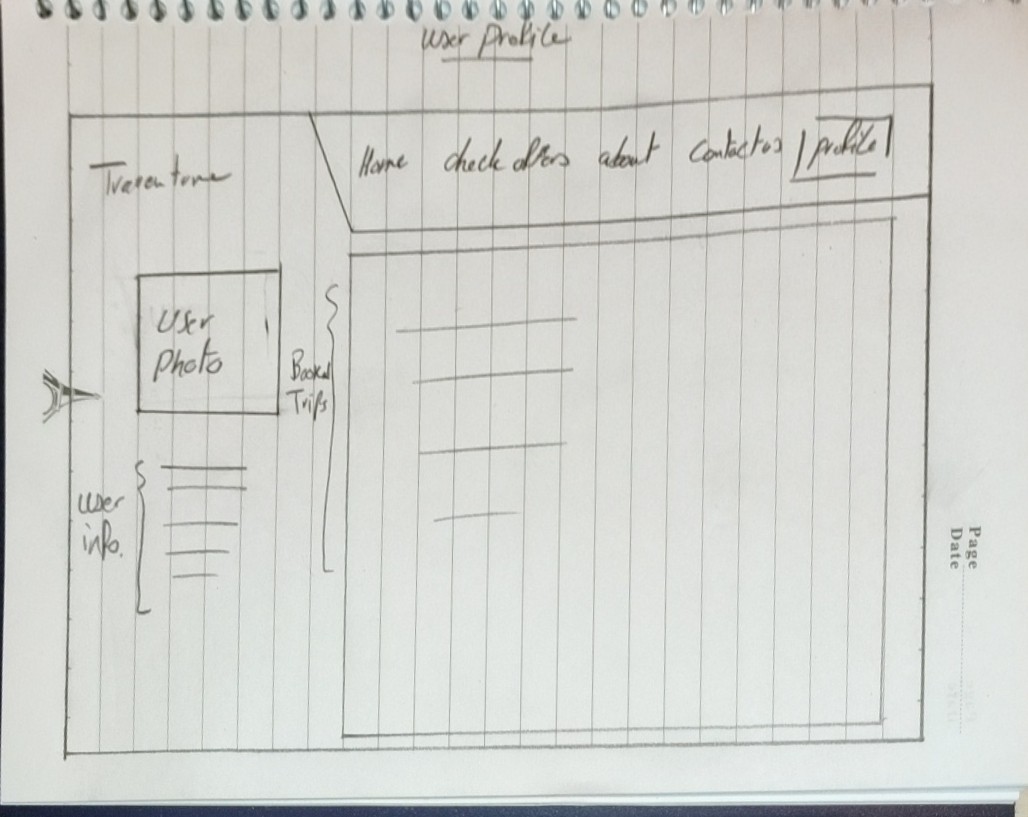 User Profile
Home check offers about contact us profile
User
Photo
Booked
Trips
User
info.
Page
Date